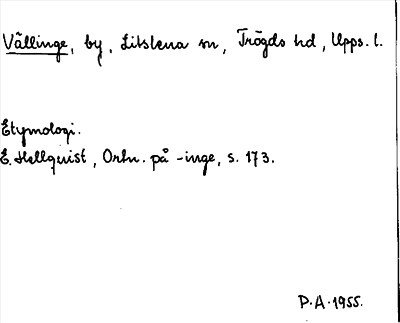 Vällinge, by, Litslena sn, Trögds hd, Upps. l.
Etymologi.
E. Hellquist, Ortn. på -inge, s. 173.
P.A. 1955.